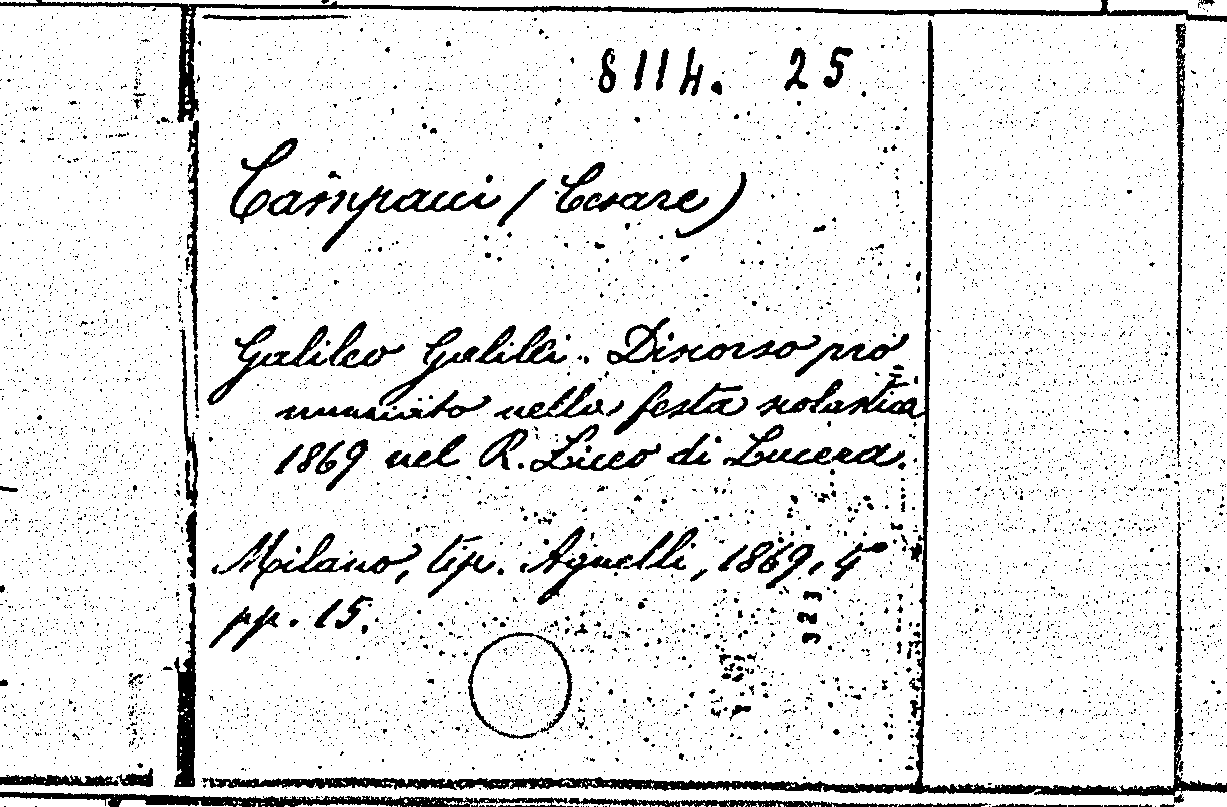 8114. 25
Campacci (Cesare)
Galileo Galilei. Discorso pro
nunciato nella festa scolastica
1869 nel R. Liceo di Lucera.
Milano, tip. Agnelli, 1869, 4º
pp. 15.
323